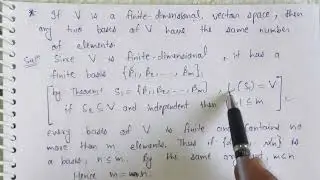 * If V is a finite-dimensional vector space, then
any two bases of V have the same number
of elements.
Since V is finite-dimensional, it has a
finite basis {β1, β2, ..., βm},
[by Theorem: S1 = {β1, β2, ..., βm}, L(S1) = V
if S2 ⊆ V and independent then ≤ m].
every basis of V is finite and contains no
more than m elements. Thus if { , , ... αn} is
a basis, n ≤ m. By the same argument, m ≤ n
Hence m = n.